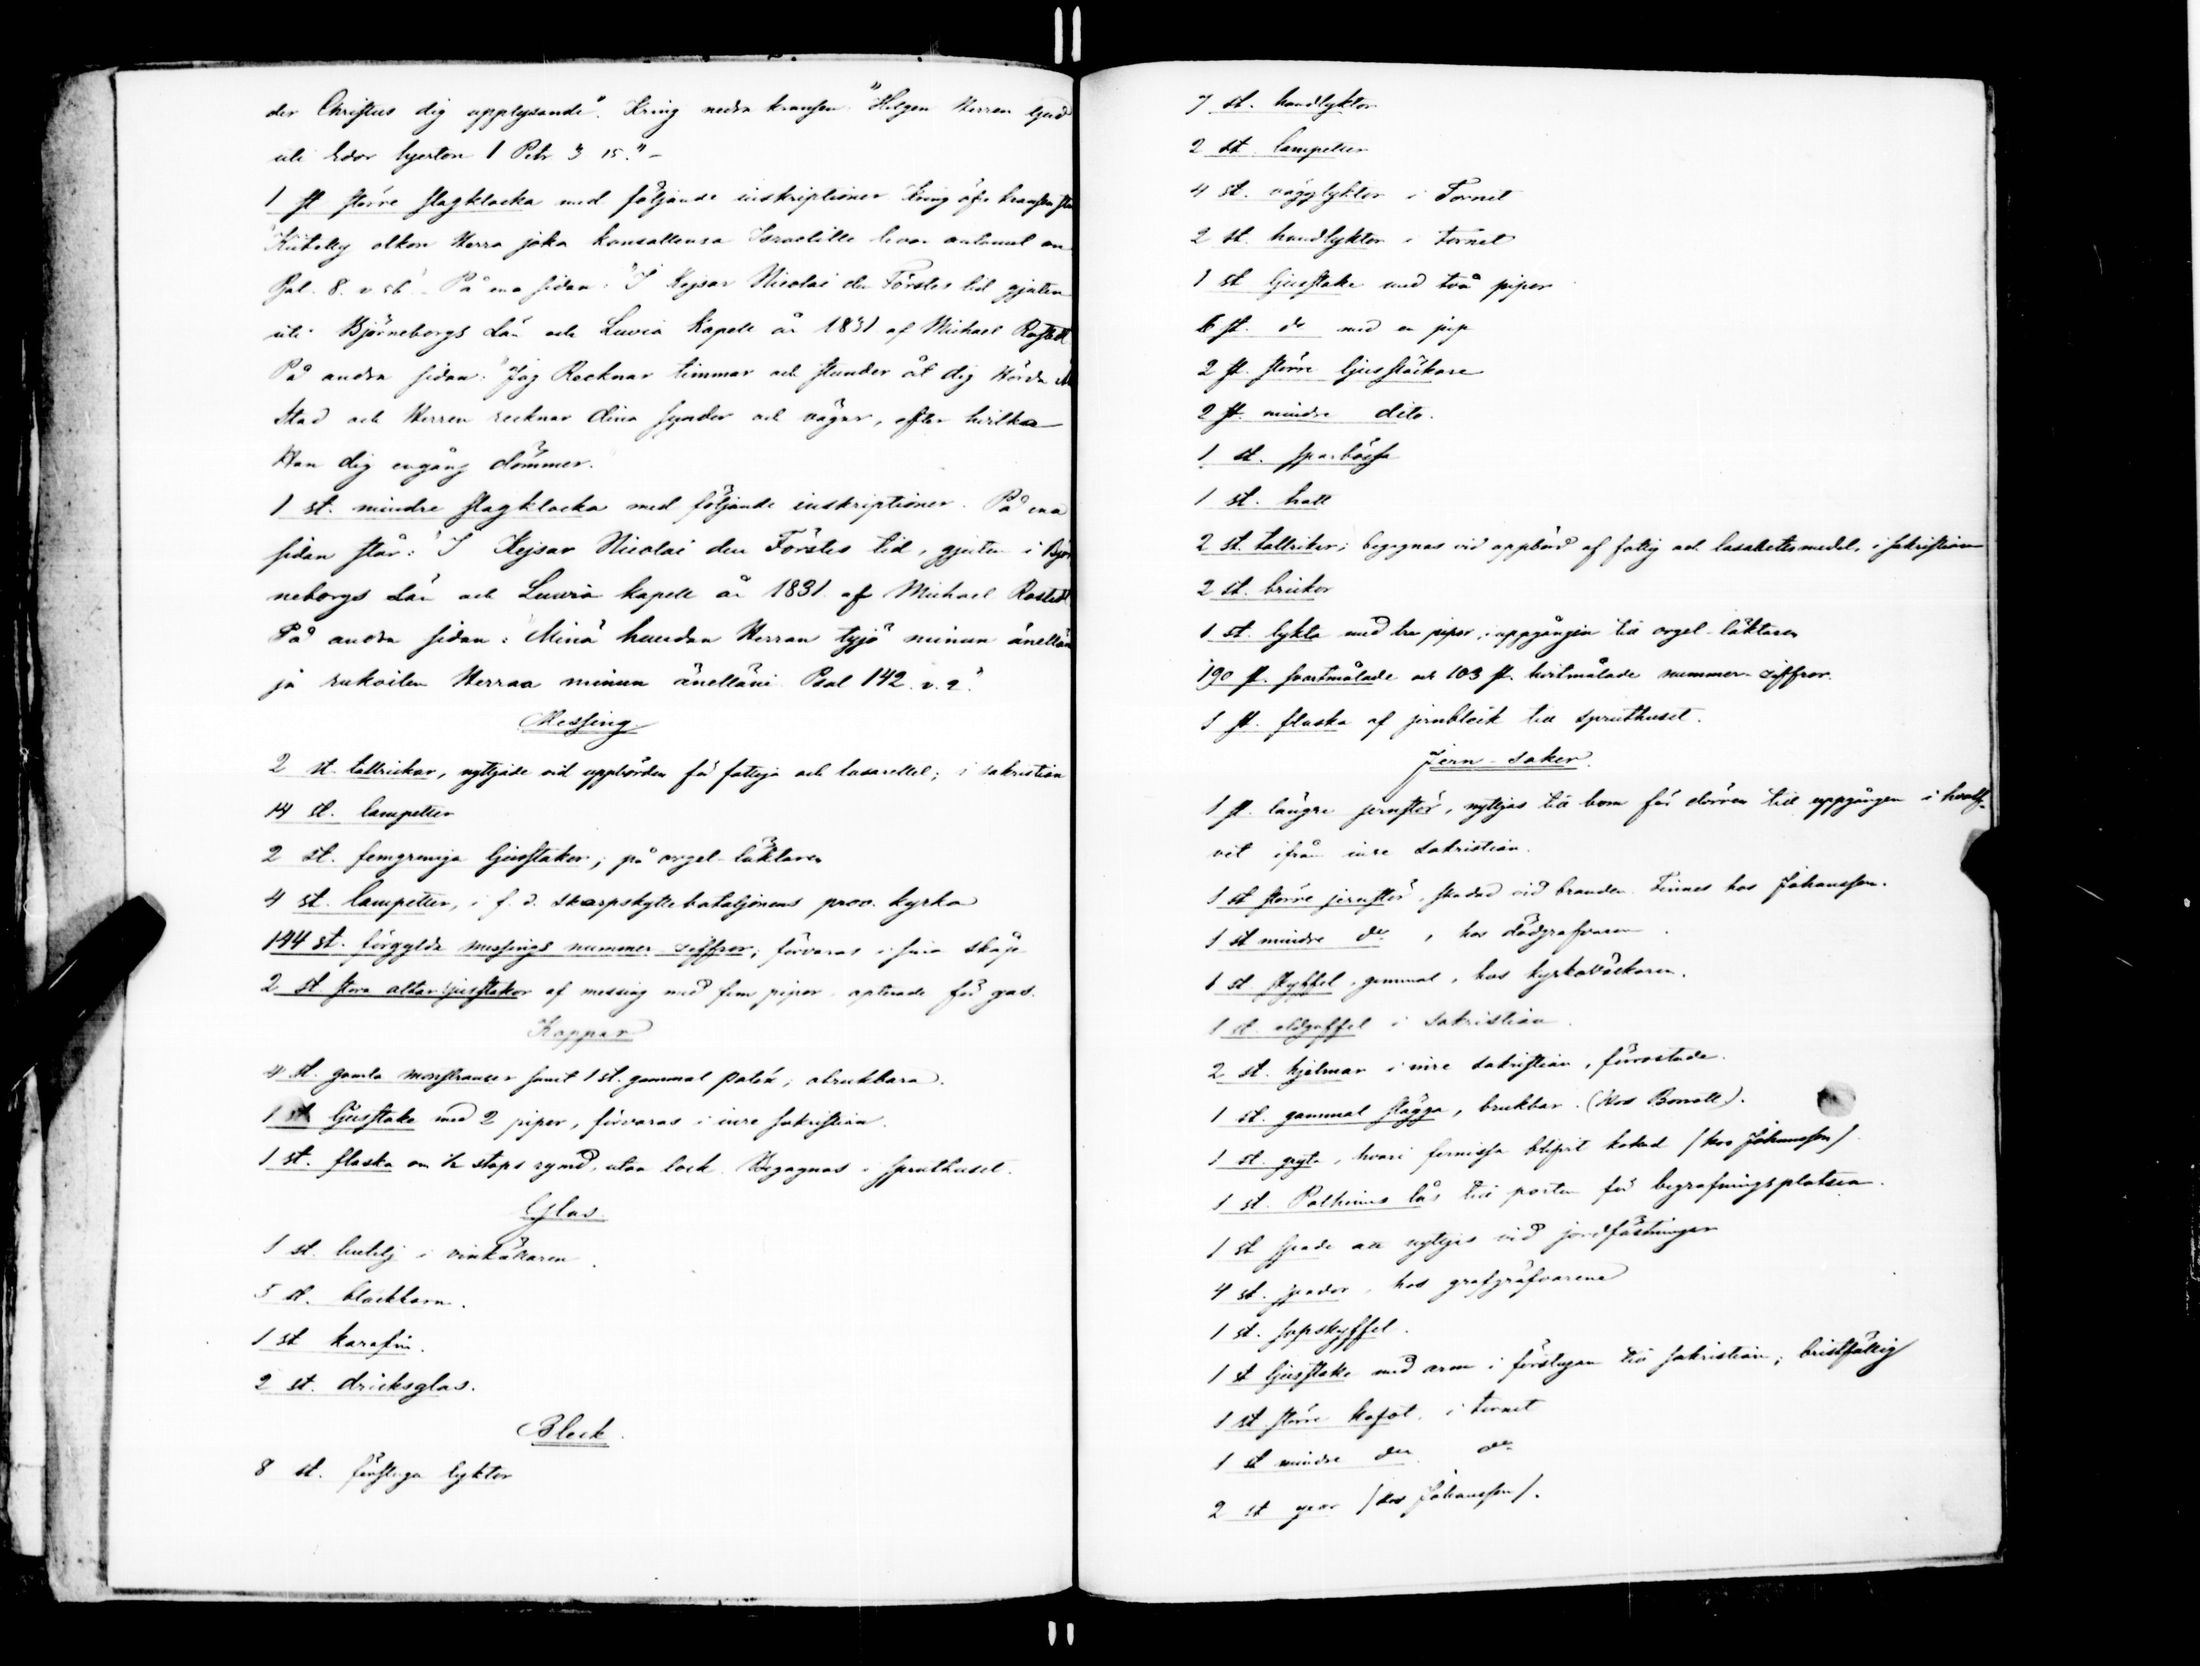 der Christus dig upplysande". Kring nedra kransen: "Helgen Herren Gud
uti Edor hjerton 1 Petr 3 15." –
1 st större slagklocka med följande inskriptioner Kring öfre kransen
"Kiitetty olkon Herra joka kansallensa Israelille levon antanut on
8. v 56" – På ena sidan: "I Kejsar Nicolai den Förstes tid gjuten
uti Björneborgs Län och Luvia Kapell år 1831 af Michael Rostedt
På andra sidan: "Jag Recknar timmar och stunder åt dig
Stad och Herren recknar dina synder och vägar, efter hvilka
Han dig engång dömmer.
1 st. mindre slagklocka med följande inskriptioner. På ena
sidan står: "I Kejsar Nicolai den Förstes tid, gjuten i Björ
neborgs Län och Luvia kapell år 1831 af Michael Rostedt
På andra sidan: "Minä huudan Herran tyjö minun änelläni
ja rukoilen Herraa minun änelläni Psal 142. v. 2."
Messing
2 st. tallrickar, nyttjade vid uppbörden för fattiga och lasarettet; i sakristian
14 st. lampetter
2 st. femgreniga ljusstakar; på orgel-läktaren
4 st. lampetter, i f. d. skarpskyttebataljonens prov. kyrka
144 st. förgyllda messings nummer siffror; förvaras i sina skåp
2 st stora altar ljusstakar af messing med fem piper apterade för gas.
Koppar
4 st. gamla monstranser samt 1 st. gammal patén; obrukbara.
1 st ljusstake med 2 piper, förvaras i inre sakristian.
1 st. flaska om ½ stops rymd, utan lock. Begagnas i spruthuset.
Glas.
1 st. butelj i vinkällaren.
5 st. bläckhorn.
1 st karafin.
2 st. dricksglas.
Bleck.
8 st. lyktor
7 st. handlyktor
2 st. lampetter
4 st. vägglyktor i Tornet
2 st. handlyktor i tornet
1 st ljusstake med två piper
6 st. do med en pip
2 st. större ljussläckare
2 st. mindre dito.
1 st. sparbössa
1 st. tratt
2 st. tallrikar; begagnas vid uppbörd af fattig och lasarettsmedel, i sakristian
2 st. brickor
1 st. lykta med tre piper, i uppgången till orgel-läktaren
190 st. svartmålade och 103 st. hvitmålade nummer-siffror.
1 st. flaska af jernbleck till spruthuset.
Jern-saker.
1 st. längre jernstör, nyttjas till bom för dörren till uppgången i hvalf-
vet ifrån inre sakristian.
1 st större jernstör, skadad vid branden. Finnes hos Johansson.
1 st mindre do, hos dödgrafvaren.
1 st. skyffel, gammal, hos kyrkoväktaren.
1 st. eldgaffel i sakristian.
2 st. hjelmar i inre sakristian, förrostade.
1 st. gammal slägga, brukbar. (Hos Borrell).
1 st. gryta, hvari fernissa blifvit kokad /hos Johansson/
1 st. Polhems lås till porten för begrafningsplatsen.
1 st spade att nyttjas vid jordfästningar
4 st. spadar, hos grafgräfvarene
1 st. sopskyffel.
1 st ljusstake med arm i förstugan till sakristian; bristfällig
1 st större kofot, i tornet
1 st mindre do do
2 st /hos Johansson/.